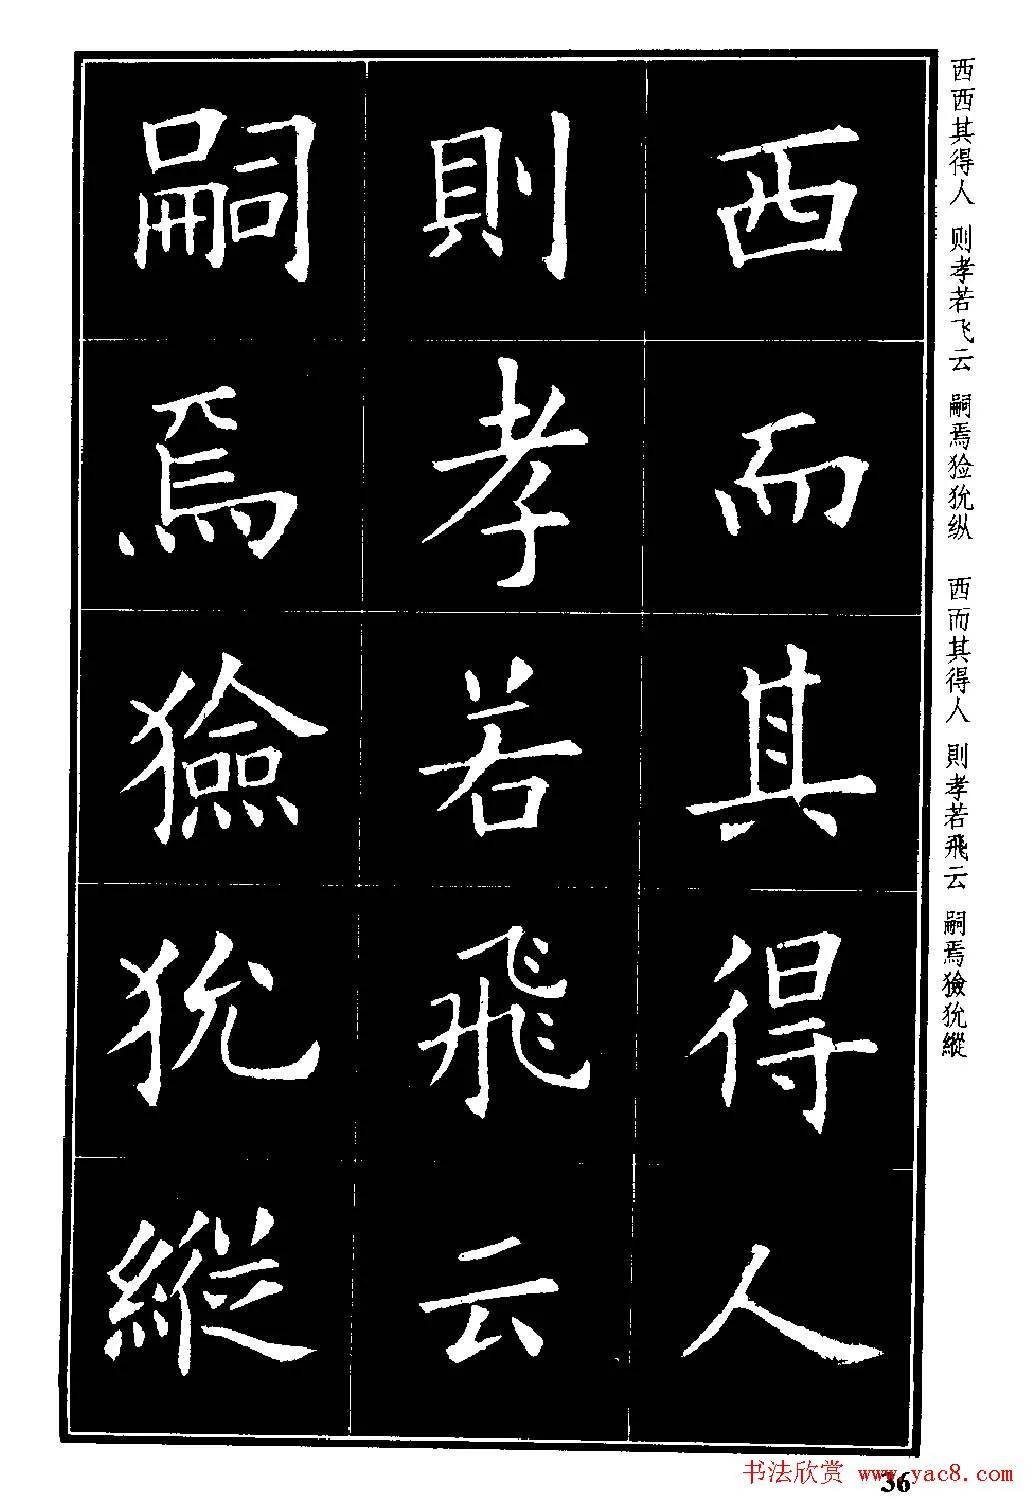 西而其得人
則孝若飛云
嗣焉獫狁縱
西西其得人 则孝若飞云 嗣焉猃狁纵 西而其得人 則孝若飛云 嗣焉獫狁縱
36
书法欣赏 www.yac8.com